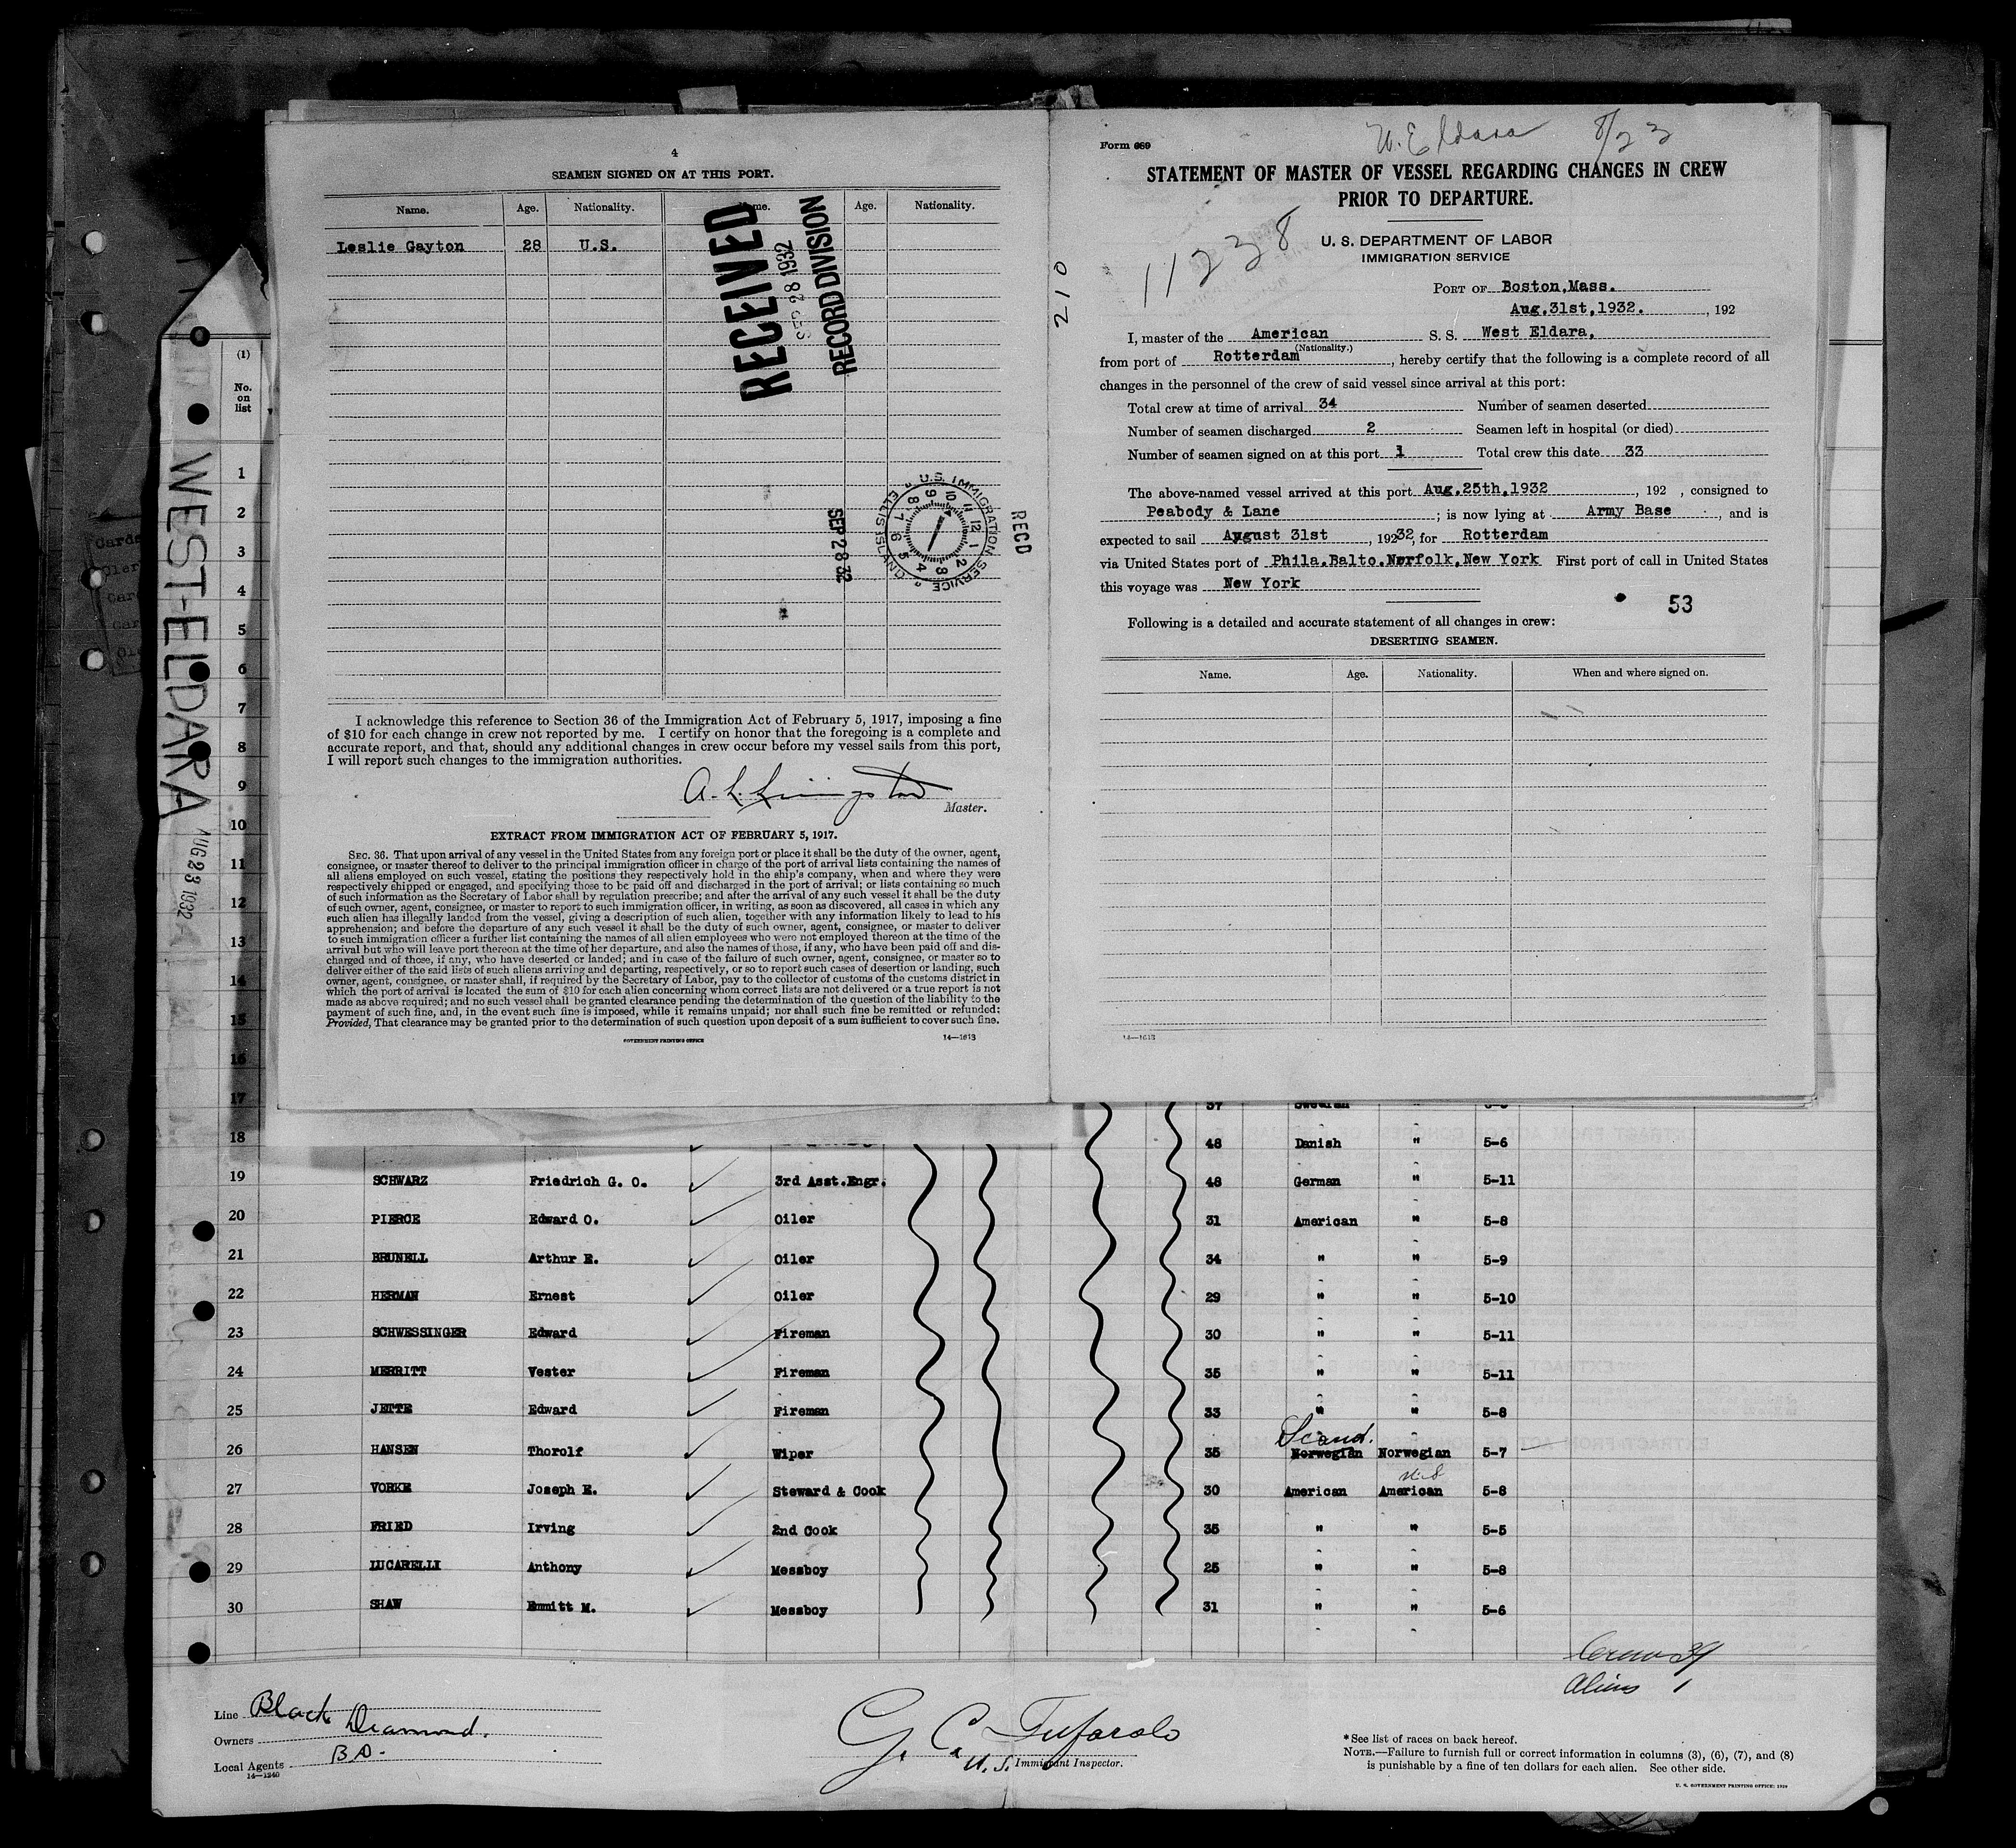 4
SEAMEN SIGNED ON AT THIS PORT.
Name. Age. Nationality. Name. Age. Nationality.
Leslie Gayton 28 U.S.
RECEIVED
SEP 28 1932
RECORD DIVISION
U.S. IMMIGRATION SERVICE ELLIS ISLAND
SEP 28 32
RECD
I acknowledge this reference to Section 36 of the Immigration Act of February 5, 1917, imposing a fine
of $10 for each change in crew not reported by me. I certify on honor that the foregoing is a complete and
accurate report, and that, should any additional changes in crew occur before my vessel sails from this port,
I will report such changes to the immigration authorities.
A. L. Livingston
Master.
EXTRACT FROM IMMIGRATION ACT OF FEBRUARY 5, 1917.
SEC. 36. That upon arrival of any vessel in the United States from any foreign port or place it shall be the duty of the owner, agent,
consignee, or master thereof to deliver to the principal immigration officer in charge of the port of arrival lists containing the names of
all aliens employed on such vessel, stating the positions they respectively hold in the ship's company, when and where they were
respectively shipped or engaged, and specifying those to be paid off and discharged in the port of arrival; or lists containing so much
of such information as the Secretary of Labor shall by regulation prescribe; and after the arrival of any such vessel it shall be the duty
of such owner, agent, consignee, or master to report to such immigration officer, in writing, as soon as discovered, all cases in which any
such alien has illegally landed from the vessel, giving a description of such alien, together with any information likely to lead to his
apprehension; and before the departure of any such vessel it shall be the duty of such owner, agent, consignee, or master to deliver
to such immigration officer a further list containing the names of all alien employees who were not employed thereon at the time of the
arrival but who will leave port thereon at the time of her departure, and also the names of those, if any, who have been paid off and dis-
charged and of those, if any, who have deserted or landed; and in case of the failure of such owner, agent, consignee, or master so to
deliver either of the said lists of such aliens arriving and departing, respectively, or so to report such cases of desertion or landing, such
owner, agent, consignee, or master shall, if required by the Secretary of Labor, pay to the collector of customs of the customs district in
which the port of arrival is located the sum of $10 for each alien concerning whom correct lists are not delivered or a true report is not
made as above required; and no such vessel shall be granted clearance pending the determination of the question of the liability to the
payment of such fine, and, in the event such fine is imposed, while it remains unpaid; nor shall such fine be remitted or refunded:
Provided, That clearance may be granted prior to the determination of such question upon deposit of a sum sufficient to cover such fine.
GOVERNMENT PRINTING OFFICE 14—1613
W. Eldara 8/23
Form 689
STATEMENT OF MASTER OF VESSEL REGARDING CHANGES IN CREW
PRIOR TO DEPARTURE.
11238
210
U. S. DEPARTMENT OF LABOR
IMMIGRATION SERVICE
PORT OF Boston,Mass.
Aug.31st,1932. , 192
I, master of the American S. S. West Eldara,
(Nationality.)
from port of Rotterdam , hereby certify that the following is a complete record of all
changes in the personnel of the crew of said vessel since arrival at this port:
Total crew at time of arrival 34 Number of seamen deserted
Number of seamen discharged 2 Seamen left in hospital (or died)
Number of seamen signed on at this port 1 Total crew this date 33
The above-named vessel arrived at this port Aug.25th,1932 , 192 , consigned to
Peabody & Lane ; is now lying at Army Base , and is
expected to sail August 31st , 1932, for Rotterdam
via United States port of Phila.Balto.Norfolk,New York First port of call in United States
this voyage was New York
53
Following is a detailed and accurate statement of all changes in crew:
DESERTING SEAMEN.
Name. Age. Nationality. When and where signed on.
14—1613
WEST-ELDARA
AUG 23 1932
(1)
No.
on
list
1
2
3
4
5
6
7
8
9
10
11
12
13
14
15
16
17 37 Swedish
18 48 Danish " 5-6
19 SCHWARZ Friedrich G. O. 3rd Asst.Engr. 48 German " 5-11
20 PIERCE Edward O. Oiler 31 American " 5-8
21 BRUNELL Arthur E. Oiler 34 " " 5-9
22 HERMAN Ernest Oiler 29 " " 5-10
23 SCHWESSINGER Edward Fireman 30 " " 5-11
24 MERRITT Vester Fireman 35 " " 5-11
25 JETTE Edward Fireman 33 " " 5-8
Scand.
26 HANSEN Thorolf Wiper 35 Norwegian Norwegian 5-7
U.S
27 VORKE Joseph E. Steward & Cook 30 American American 5-8
28 FRIED Irving 2nd Cook 35 " " 5-5
29 LUCARELLI Anthony Messboy 25 " " 5-8
30 SHAW Emmitt M. Messboy 31 " " 5-6
Crew 34
Aliens 1
Line Black Diamond.
Owners
Local Agents B D.
14—1240
G. C. Tufarolo
U. S. Immigrant Inspector.
* See list of races on back hereof.
NOTE.—Failure to furnish full or correct information in columns (3), (6), (7), and (8)
is punishable by a fine of ten dollars for each alien. See other side.
U. S. GOVERNMENT PRINTING OFFICE: 1929